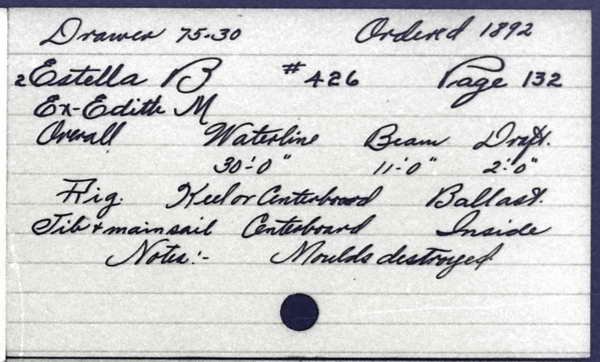 Drawer 75-30 Ordered 1892
2 Estella B #426 Page 132
Ex-Edith M
Overall Waterline Beam Draft.
30'-0" 11'-0" 2'-0"
Rig. Keel or Centerboard Ballast.
Jib + mainsail Centerboard Inside
Notes:- Moulds destroyed